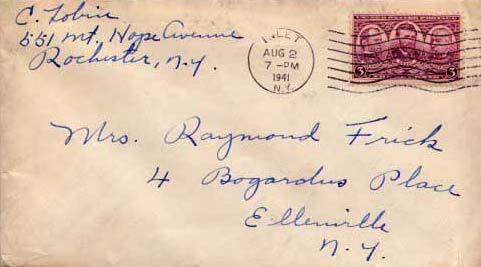 C. Tobin
551 Mt. Hope Avenue
Rochester, N.Y.
INLET
AUG 2
7 -PM
1941
N.Y.
3 3
Mrs. Raymond Frick
4 Bogardus Place
Ellenville
N.Y.